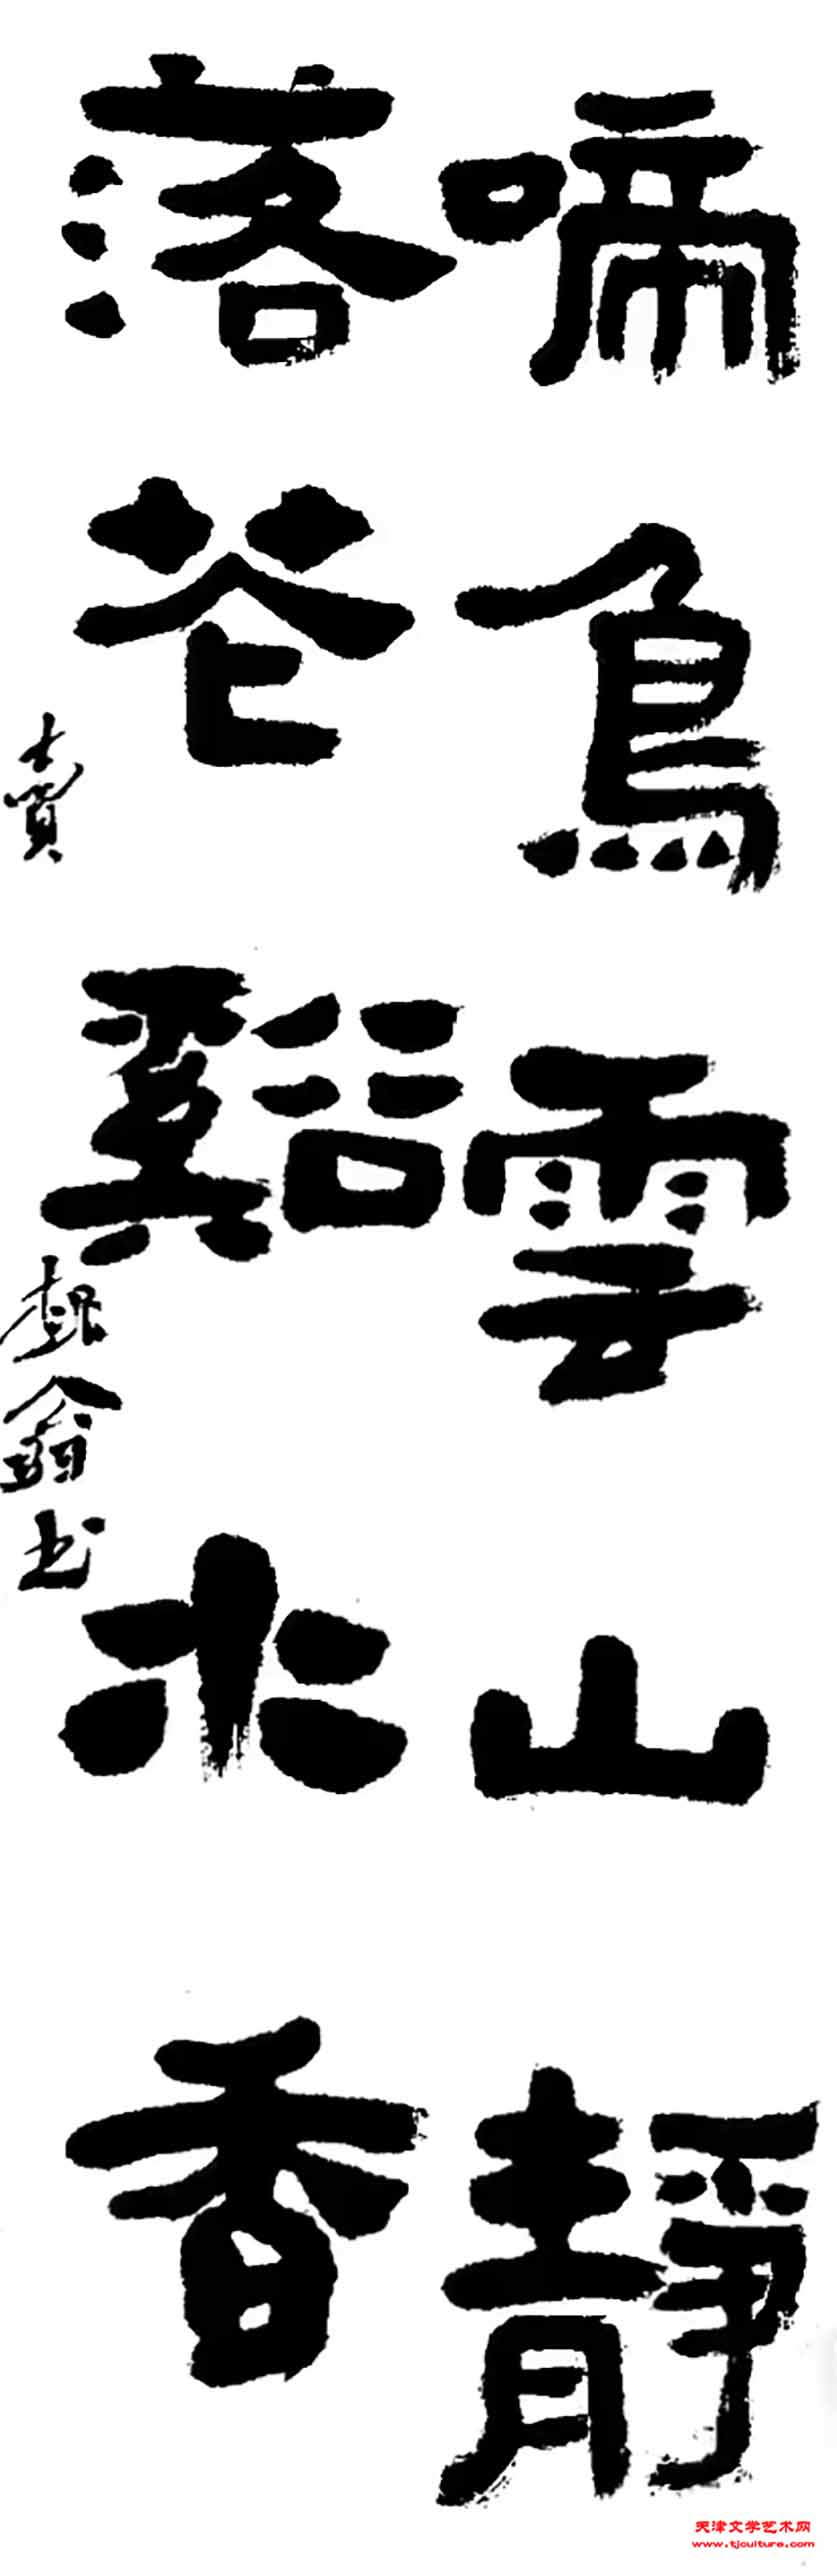 啼鳥雲山靜
落花谿水香
賣
翁书
天津文学艺术网
www.tjculture.com